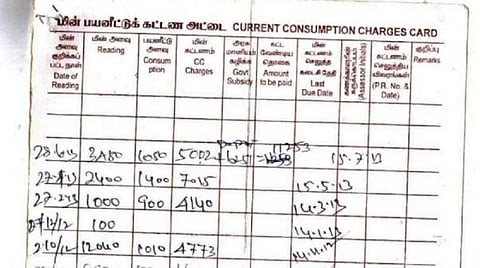 மின் பயனீட்டுக் கட்டண அட்டை CURRENT CONSUMPTION CHARGES CARD
மின் அளவு குறிக்கப் பட்ட நாள் Date of Reading
மின் அளவு Reading
பயனீட்டு அளவு Consumption
மின் கட்டணம் CC Charges
அரசு மானியம் கழிக்க Govt. Subsidy
கட்ட வேண்டிய தொகை Amount to be paid
மின் கட்டணம் செலுத்த கடைசி தேதி Last Due Date
(Assessor Initials)
மின் கட்டணம் செலுத்திய விவரங்கள் (P.R. No. & Date)
குறிப்பு Remarks
11253
3450 1050 5002 15.7.13
2400 1400 7015 15.5.13
1000 900 4140 14.3.13
100 14.1.13
2.10/12 12040 1010 4773 14.11.12